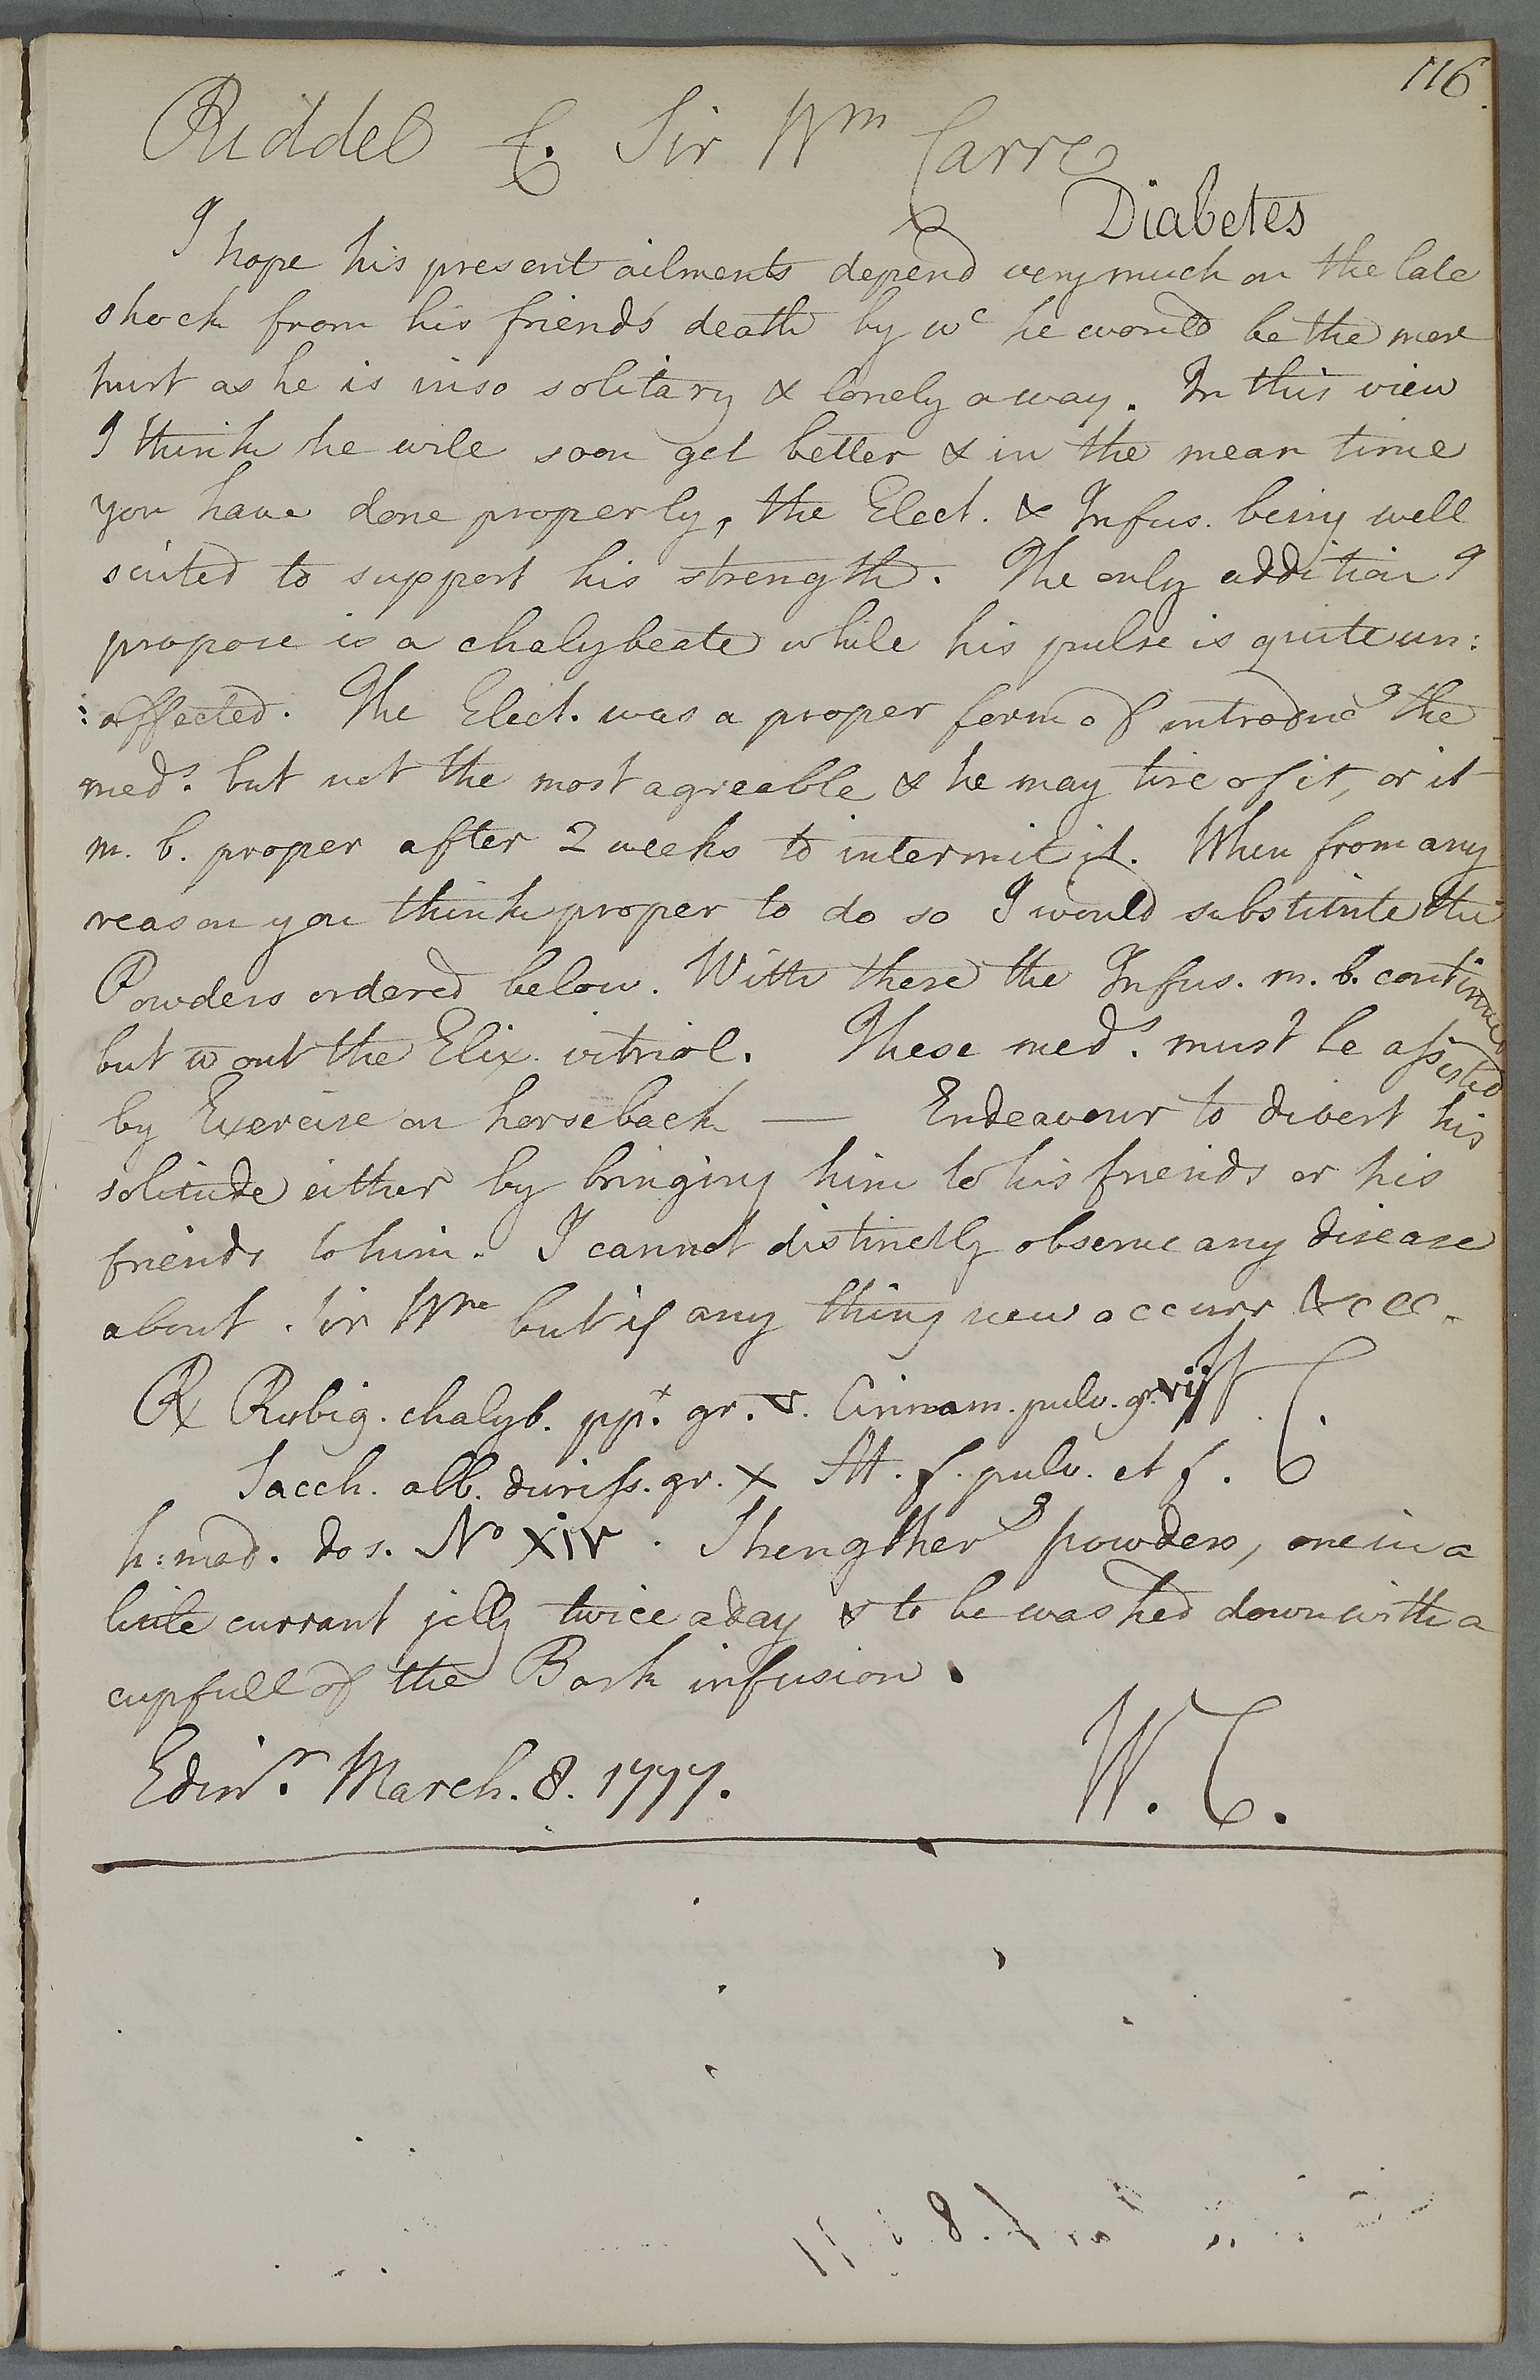 116.
Riddel f. Sir Wm Carre
Diabetes
I hope his present ailments depend very much on the late
shock from his friends death by wc he would be the more
hurt as he is in so solitary & lonely a way. In this view
I think he will soon get better & in the mean time
you have done properly, the Elect. & Infus. being well
suited to support his strength. The only addition I
propose is a chalybeate while his pulse is quite un:
:affected. The Elect. was a proper form of introducg the
meds. but not the most agreeable & he may tire of it, or it
m. b. proper after 2 weeks to intermit it. When from any
reason you think proper to do so I would substitute the
Powders ordered below. With these the Infus. m. b. continued
but wout the Elix. vitriol. These meds. must be assisted
by Exercise on horseback — Endeavour to divert his
solitude either by bringing him to his friends or his
friends to him. I cannot distinctly observe any disease
about Sir Wm but if any thing new occurr &c &c.
W. C.
℞ Rubig. chalyb. ppt. gr. v. Cinnam. pulv. gr. vij
Sacch. alb. duriss. gr. x M. f. pulv. et f.
h: mod. dos. No XIV. Strengtherg powders, one in a
little currant jelly twice a day & to be washed down with a
cupfull of the Bark infusion.
Edinr. March. 8. 1777. W. C.